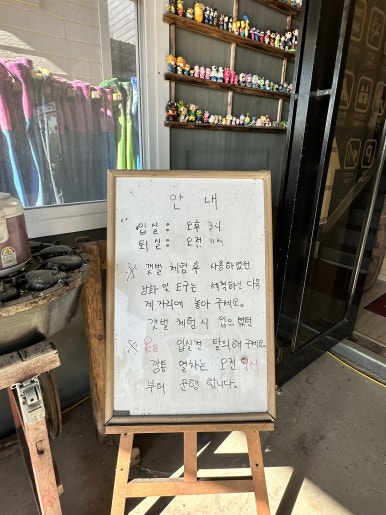 안 내
입실 : 오후 3시
퇴실 : 오전 11시
※ 갯벌 체험 후 사용하셨던
장화 및 도구는 세척하신 다음
제자리에 놓아 주세요.
갯벌 체험시 입으셨던
※ 옷은 입실전 탈의해 주세요.
깡통 열차는 오전 9시
부터 운행 합니다.